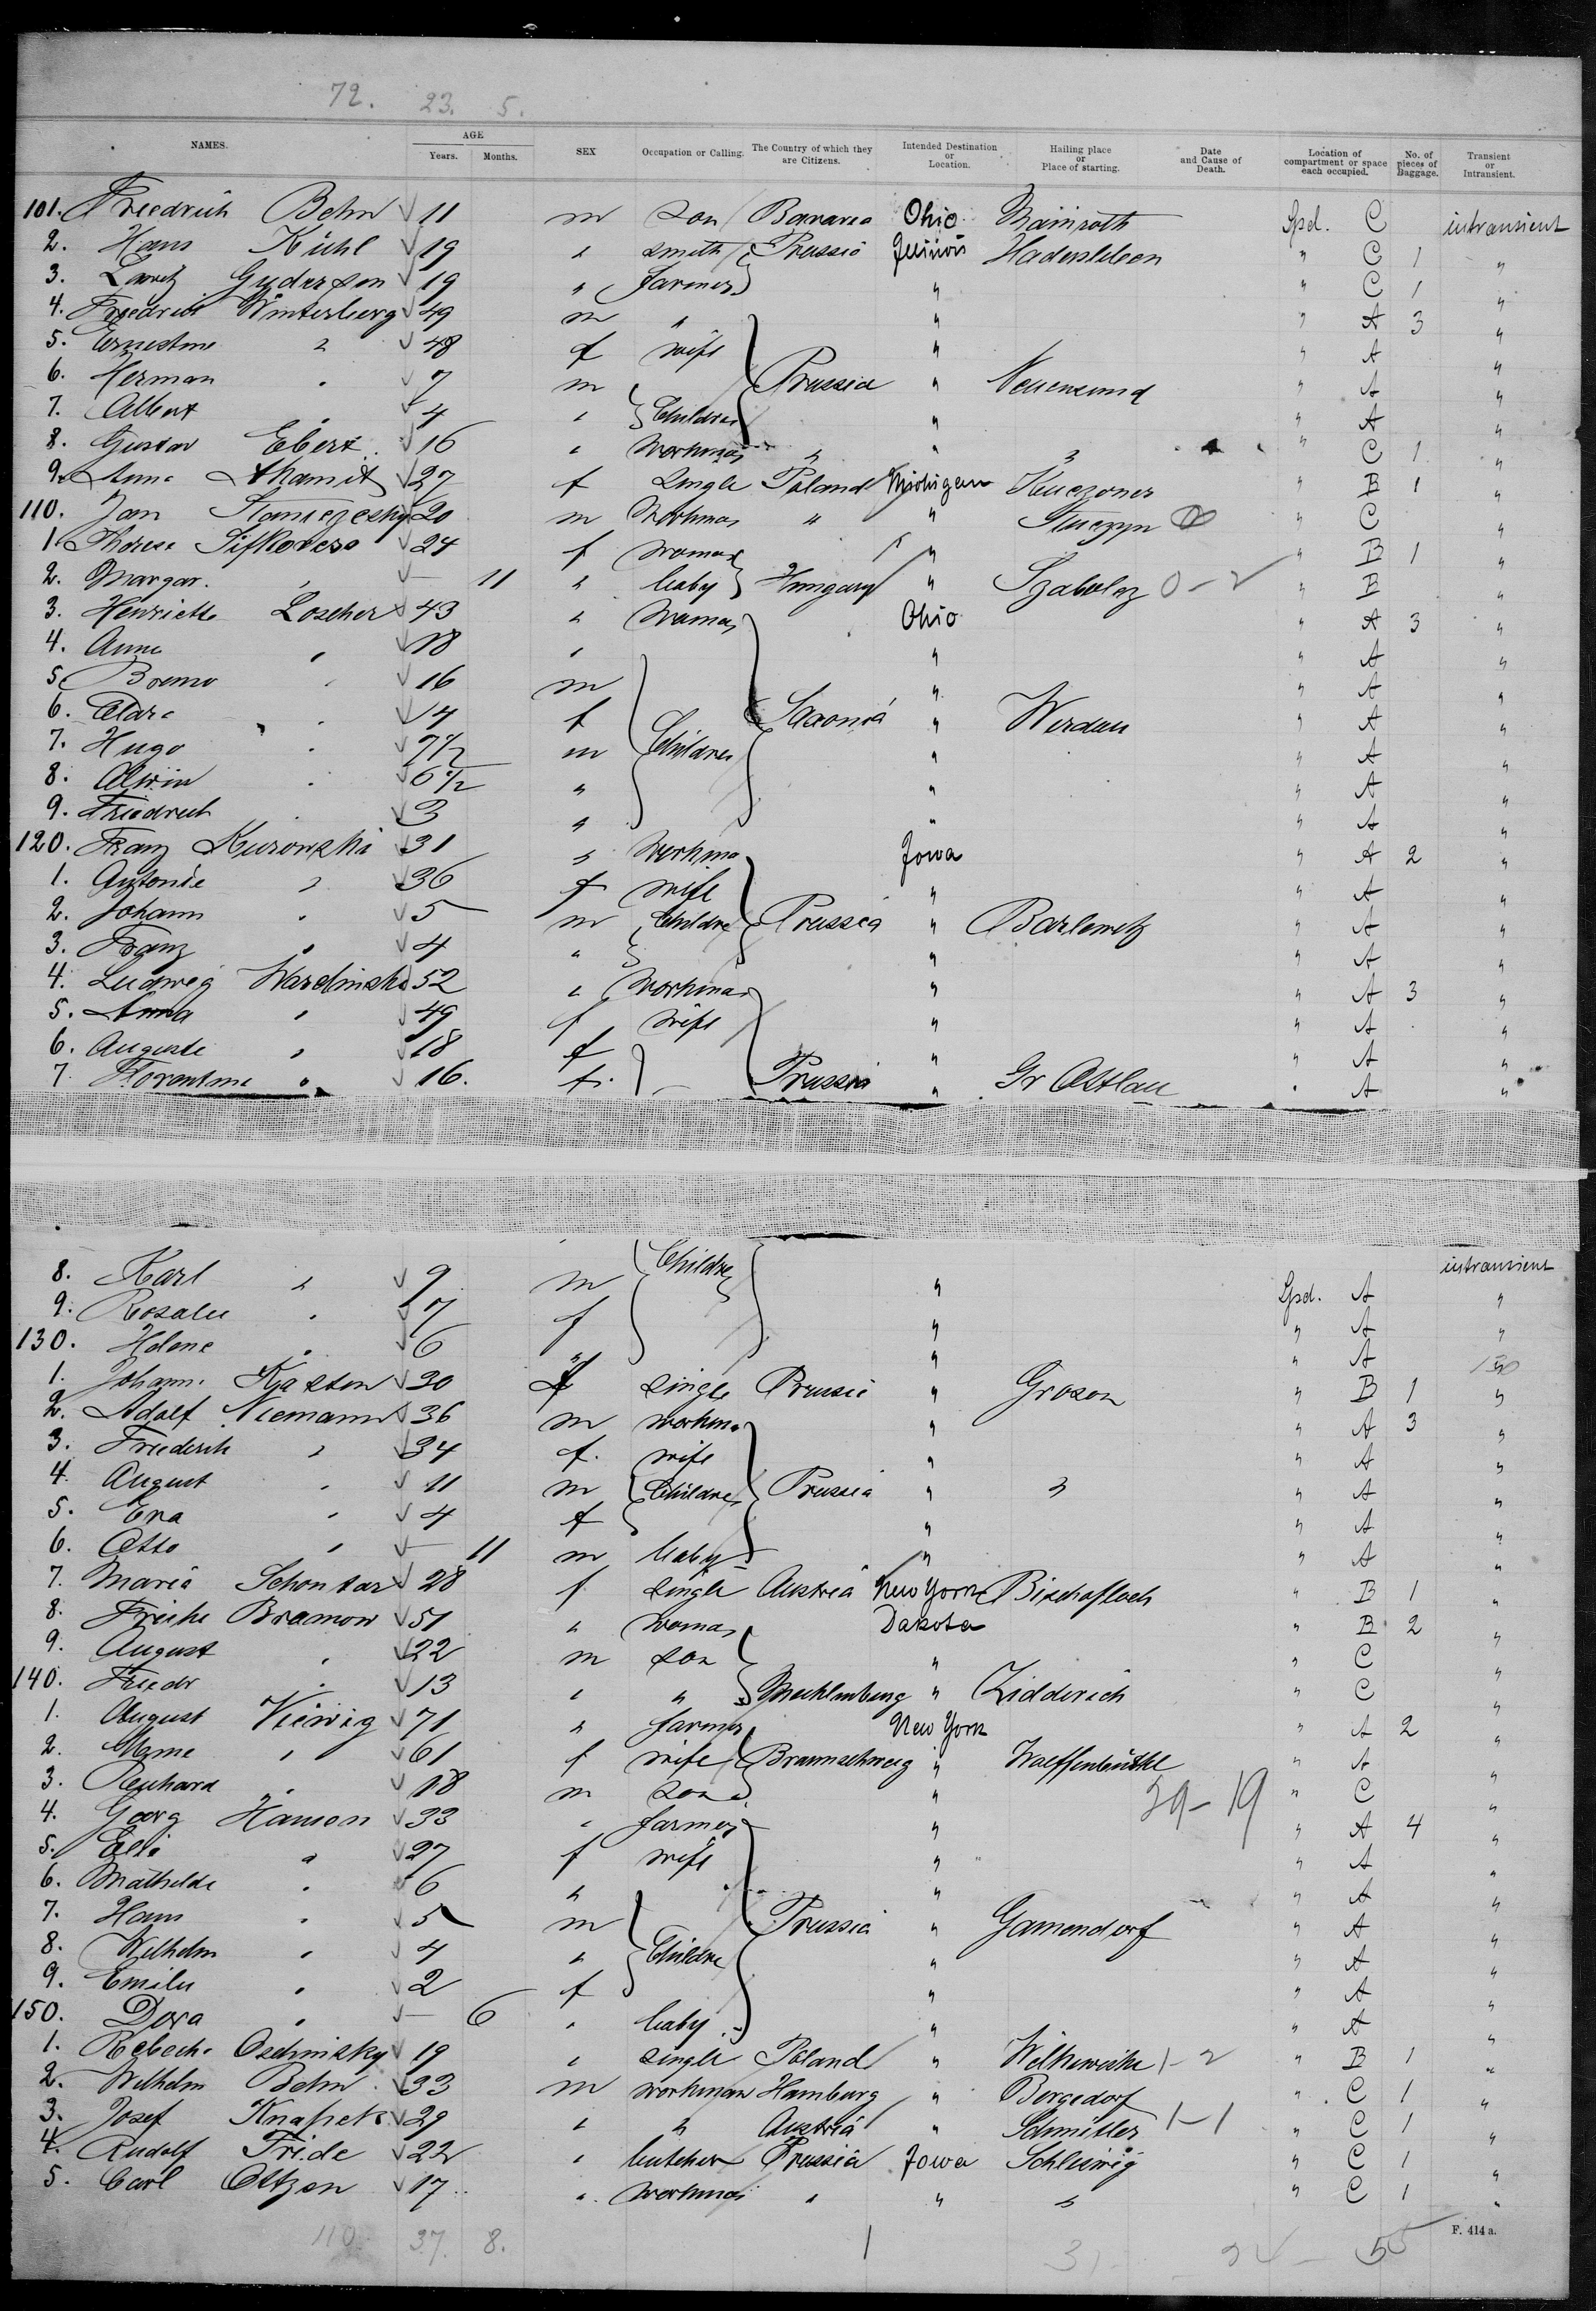 72. 23. 5.
NAMES. AGE Years. Months. SEX Occupation or Calling. The Country of which they are Citizens. Intended Destination or Location. Hailing place or Place of starting. Date and Cause of Death. Location of compartment or space each occupied. No. of pieces of Baggage. Transient or Intransient.
101. Friedrich Behn 11 m son Bavarea Ohio Mainroth Spd. C intransient
2. Hans Kühl 19 " smith Prussia Illinois Hadersleben " C 1 "
3. Gudersen 19 " farmer " " C 1 "
4. Friedrich Winterberg 49 m " " " A 3 "
5. Ernestine " 48 f wife " " A "
6. Herman " 7 m Prussia " Neuensund " A "
7. Albert " 4 " Children " " A "
8. Gustav Ebert 16 " workman " " " " C 1 "
9. Anna 27 f single Poland Michigan " B 1 "
110. Jan 20 m workman " " " C "
1. Therese 24 f woman " " B 1 "
2. Margar. " 11 " baby Hungary " Szabolcz 0-2 " B "
3. Henriette Loscher 43 " woman Ohio " A 3 "
4. Anna " 18 " " " A "
5. Bruno " 16 m " " A "
6. " 14 f Saxonia " Werdau " A "
7. Hugo " 7 1/2 m Children " " A "
8. Alwin " 6 1/2 " " " A "
9. Friedrich 3 " " " A "
120. Franz Kurowski 31 " workma Iowa " A 2 "
1. Antonie " 36 f wife " " A "
2. Johann " 5 m Childre Prussia " Barlewitz " A "
3. Franz " 4 " " " A "
4. Ludwig Wardinski 52 " workman " " A 3 "
5. Anna " 49 f wife " " A "
6. Auguste " 18 f " " A "
7. Florentine " 16. f. Prussia " Gr Ottlau " A "
8. Karl " 9 m Childre " Spd. A intransient
9. Rosalie " 7 f " " A "
130. Helene " 6 " " " A "
130
1. Johann. Kjasten 30 f single Prussia " Groson " B 1 "
2. Adolf Niemann 36 m workma " " A 3 "
3. Friederich " 34 f. wife " " A "
4. August " 11 m Children Prussia " " " A "
5. Eva " 4 f " " A "
6. Otto " 11 m baby " " A "
7. Maria Schontar 28 f single Austria New York Bischoflach " B 1 "
8. Frieke Bramow 51 " woman Dakota " B 2 "
9. August " 22 m son " " C "
140. Friedr " 13 " " Mecklenburg " Zidderich " C "
1. August Viewig 71 " farmer New York " A 2 "
2. " 61 f wife Braunschweig " Wolffenbüttel " A "
3. Reinhard " 18 m son " " C "
39-19
4. Georg Hanson 33 " farmer " " A 4 "
5. Elis " 27 f wife " " A "
6. Mathilde " 6 " " " A "
7. Hans " 5 m Prussia " Gamendorf " A "
8. Wilhelm " 4 " Childre " " A "
9. Emilie " 2 f " " A "
150. Dora " 6 " baby " " A "
1. Rebech. Oschinsky 19 " single Poland " 1-2 " B 1 "
2. Wilhelm Behn 33 m workman Hamburg " Bergedorf " C 1 "
3. Josef Knapek 29 " " Austria " 1-1 " C 1 "
4. Rudolf Fride 22 " butcher Prussia Iowa Schleswig " C 1 "
5. Carl Ottzen 17 " workman " " " " C 1 "
F. 414 a.
110. 37. 8. 1 31 24 - 55